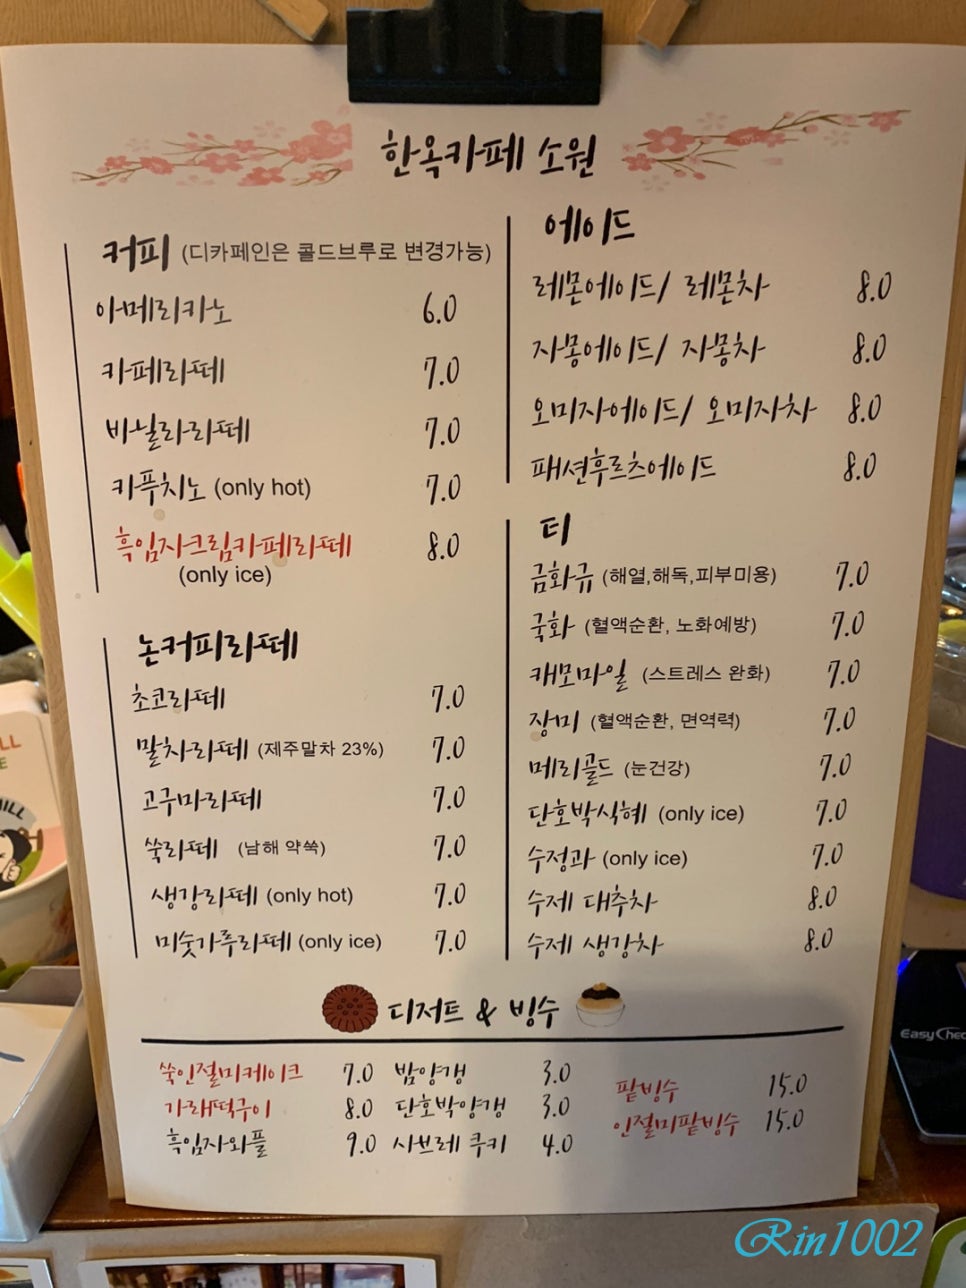 한옥카페 소원
커피 (디카페인은 콜드브루로 변경가능)
아메리카노 6.0
카페라떼 7.0
바닐라라떼 7.0
카푸치노 (only hot) 7.0
흑임자크림카페라떼 8.0
(only ice)
논커피라떼
초코라떼 7.0
말차라떼 (제주말차 23%) 7.0
고구마라떼 7.0
쑥라떼 (남해 약쑥) 7.0
생강라떼 (only hot) 7.0
미숫가루라떼 (only ice) 7.0
에이드
레몬에이드/ 레몬차 8.0
자몽에이드/ 자몽차 8.0
오미자에이드/ 오미자차 8.0
패션후르츠에이드 8.0
티
금화규 (해열,해독,피부미용) 7.0
국화 (혈액순환, 노화예방) 7.0
캐모마일 (스트레스 완화) 7.0
장미 (혈액순환, 면역력) 7.0
메리골드 (눈건강) 7.0
단호박식혜 (only ice) 7.0
수정과 (only ice) 7.0
수제 대추차 8.0
수제 생강차 8.0
디저트 & 빙수
쑥인절미케이크 7.0
가래떡구이 8.0
흑임자와플 9.0
밤양갱 3.0
단호박양갱 3.0
사브레 쿠키 4.0
팥빙수 15.0
인절미팥빙수 15.0
EasyChec
Rin1002